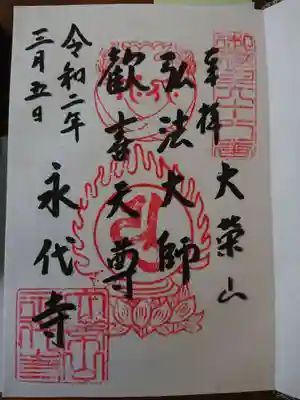 奉拝 大栄山
弘法大師
歓喜天尊
永代寺
令和二年
三月五日